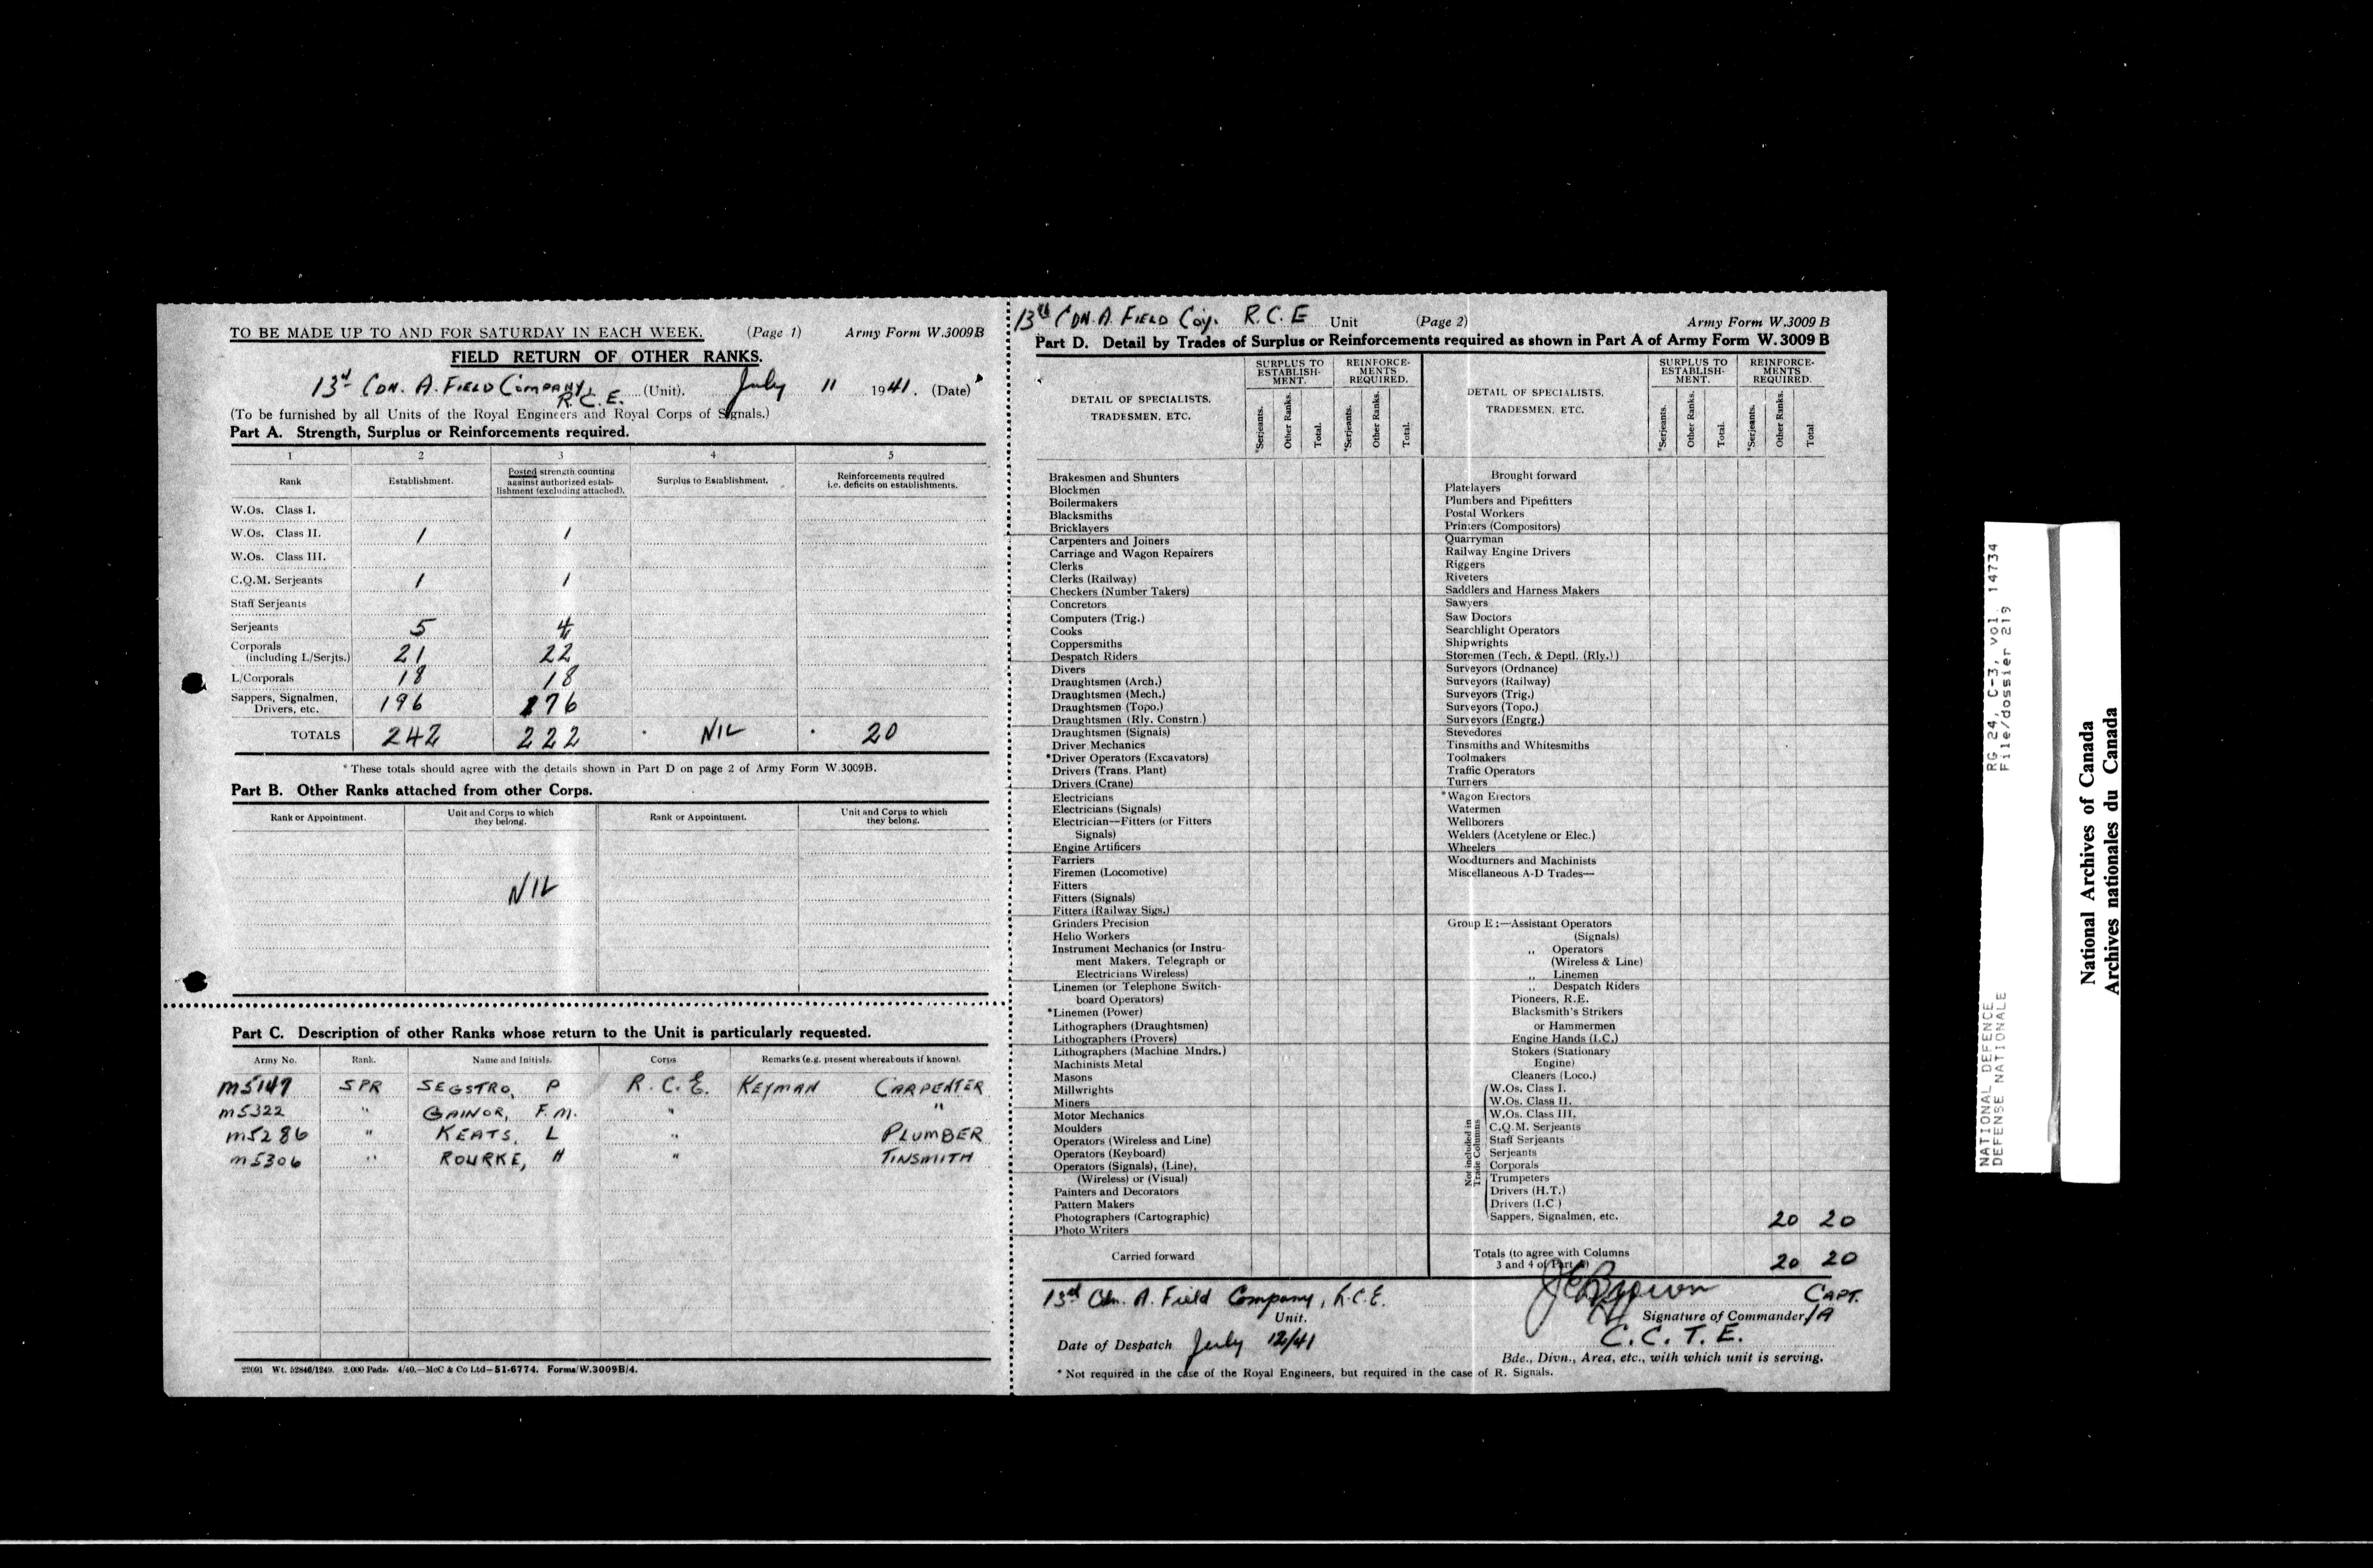 TO BE MADE UP TO AND FOR SATURDAY IN EACH WEEK. (Page 1) Army Form W.3009B
FIELD RETURN OF OTHER RANKS.
13d CDN. A. FIELD COMPANY, R.C.E. (Unit). July 11 1941. (Date)
(To be furnished by all Units of the Royal Engineers and Royal Corps of Signals.)
Part A. Strength, Surplus or Reinforcements required.
1 2 3 4 5
Rank Establishment. Posted strength counting against authorized estab-lishment (excluding attached). Surplus to Establishment. Reinforcements required i.e. deficits on establishments.
W.Os. Class I.
W.Os. Class II. 1 1
W.Os. Class III.
C.Q.M. Serjeants 1 1
Staff Serjeants
Serjeants 5 4
Corporals
(including L/Serjts.) 21 22
L/Corporals 18 18
Sappers, Signalmen,
Drivers, etc. 196 176
TOTALS 242 222 NIL 20
* These totals should agree with the details shown in Part D on page 2 of Army Form W.3009B.
Part B. Other Ranks attached from other Corps.
Rank or Appointment. Unit and Corps to which they belong. Rank or Appointment. Unit and Corps to which they belong.
NIL
Part C. Description of other Ranks whose return to the Unit is particularly requested.
Army No. Rank. Name and Initials. Corps Remarks (e.g. present whereabouts if known).
M5147 SPR SEGSTRO, P R.C.E. KEYMAN CARPENTER
M5322 " GAINOR, F.M. " "
M5286 " KEATS, L " PLUMBER
M5306 " ROURKE, H " TINSMITH
22091 Wt. 52846/1249. 2,000 Pads. 4/40.—McC & Co Ltd—51-6774. Forms/W.3009B/4.
13th CDN. A. FIELD Coy. R.C.E Unit (Page 2) Army Form W.3009 B
Part D. Detail by Trades of Surplus or Reinforcements required as shown in Part A of Army Form W. 3009 B
DETAIL OF SPECIALISTS, TRADESMEN, ETC.
SURPLUS TO ESTABLISH-MENT.
REINFORCE-MENTS REQUIRED.
*Serjeants. Other Ranks. Total. *Serjeants. Other Ranks. Total.
Brakesmen and Shunters
Blockmen
Boilermakers
Blacksmiths
Bricklayers
Carpenters and Joiners
Carriage and Wagon Repairers
Clerks
Clerks (Railway)
Checkers (Number Takers)
Concretors
Computers (Trig.)
Cooks
Coppersmiths
Despatch Riders
Divers
Draughtsmen (Arch.)
Draughtsmen (Mech.)
Draughtsmen (Topo.)
Draughtsmen (Rly. Constrn.)
Draughtsmen (Signals)
Driver Mechanics
*Driver Operators (Excavators)
Drivers (Trans. Plant)
Drivers (Crane)
Electricians
Electricians (Signals)
Electrician—Fitters (or Fitters
Signals)
Engine Artificers
Farriers
Firemen (Locomotive)
Fitters
Fitters (Signals)
Fitters (Railway Sigs.)
Grinders Precision
Helio Workers
Instrument Mechanics (or Instru-
ment Makers, Telegraph or
Electricians Wireless)
Linemen (or Telephone Switch-
board Operators)
*Linemen (Power)
Lithographers (Draughtsmen)
Lithographers (Provers)
Lithographers (Machine Mndrs.)
Machinists Metal
Masons
Millwrights
Miners
Motor Mechanics
Moulders
Operators (Wireless and Line)
Operators (Keyboard)
Operators (Signals), (Line),
(Wireless) or (Visual)
Painters and Decorators
Pattern Makers
Photographers (Cartographic)
Photo Writers
Carried forward
DETAIL OF SPECIALISTS, TRADESMEN, ETC.
SURPLUS TO ESTABLISH-MENT.
REINFORCE-MENTS REQUIRED.
*Serjeants. Other Ranks. Total. *Serjeants. Other Ranks. Total
Brought forward
Platelayers
Plumbers and Pipefitters
Postal Workers
Printers (Compositors)
Quarryman
Railway Engine Drivers
Riggers
Riveters
Saddlers and Harness Makers
Sawyers
Saw Doctors
Searchlight Operators
Shipwrights
Storemen (Tech. & Deptl. (Rly.))
Surveyors (Ordnance)
Surveyors (Railway)
Surveyors (Trig.)
Surveyors (Topo.)
Surveyors (Engrg.)
Stevedores
Tinsmiths and Whitesmiths
Toolmakers
Traffic Operators
Turners
*Wagon Erectors
Watermen
Wellborers
Welders (Acetylene or Elec.)
Wheelers
Woodturners and Machinists
Miscellaneous A-D Trades—
Group E:—Assistant Operators
(Signals)
,, Operators
(Wireless & Line)
,, Linemen
,, Despatch Riders
Pioneers, R.E.
Blacksmith's Strikers
or Hammermen
Engine Hands (I.C.)
Stokers (Stationary
Engine)
Cleaners (Loco.)
Not included in Trade Columns
W.Os. Class I.
W.Os. Class II.
W.Os. Class III.
C.Q.M. Serjeants
Staff Serjeants
Serjeants
Corporals
Trumpeters
Drivers (H.T.)
Drivers (I.C.)
Sappers, Signalmen, etc. 20 20
Totals (to agree with Columns
3 and 4 of Part A) 20 20
13d Cdn. A. Field Company, R.C.E. Brown CAPT.
Unit. Signature of Commander /A
C.C.T.E.
Date of Despatch July 12/41
Bde., Divn., Area, etc., with which unit is serving.
* Not required in the case of the Royal Engineers, but required in the case of R. Signals.
NATIONAL DEFENCE RG 24, C-3, vol. 14734
DEFENSE NATIONALE File/dossier 219
National Archives of Canada
Archives nationales du Canada